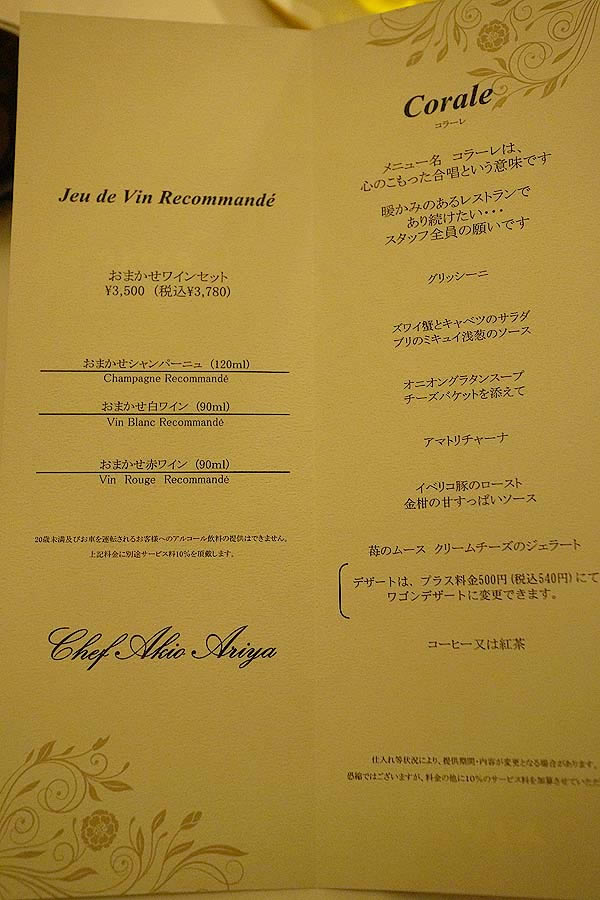 Jeu de Vin Recommandé
おまかせワインセット
¥3,500 (税込¥3,780)
おまかせシャンパーニュ (120ml)
Champagne Recommandé
おまかせ白ワイン (90ml)
Vin Blanc Recommandé
おまかせ赤ワイン (90ml)
Vin Rouge Recommandé
20歳未満及びお車を運転されるお客様へのアルコール飲料の提供はできません。
上記料金に別途サービス料10%を頂戴します。
Chef Akio Ariya
Corale
コラーレ
メニュー名 コラーレは、
心のこもった合唱という意味です
暖かみのあるレストランで
あり続けたい・・・
スタッフ全員の願いです
グリッシーニ
ズワイ蟹とキャベツのサラダ
ブリのミキュイ浅葱のソース
オニオングラタンスープ
チーズバケットを添えて
アマトリチャーナ
イベリコ豚のロースト
金柑の甘すっぱいソース
苺のムース クリームチーズのジェラート
デザートは、プラス料金500円(税込540円)にて
ワゴンデザートに変更できます。
コーヒー又は紅茶
仕入れ等状況により、提供期間・内容が変更となる場合があります。
恐縮ではございますが、料金の他に10%のサービス料を加算させていただ